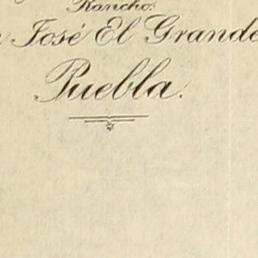 Ranchos
José El Grande
Puebla.